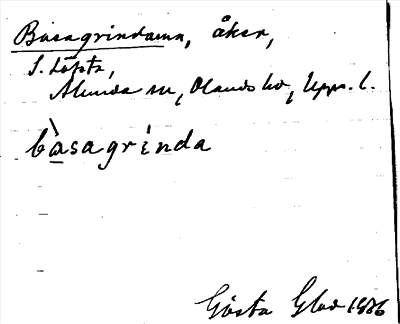 Båsagrindarna, åker,
S. Löfsta,
Alunda sn, Olands hd, Upps. l.
bàsagrinda
Gösta Glad 1986